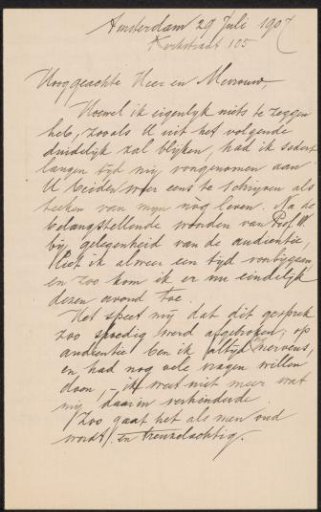 Amsterdam 29 Juli 1907
Kerkstraat 105
Hooggeachte Heer en Mevrouw,
Hoewel ik eigenlijk niets te zeggen
heb, zooals U uit het volgende
duidelijk zal blijken, had ik sedert
langen tijd mij voorgenomen aan
U beiden weer eens te schrijven als
teeken van mijn nog leven. Na de
belangstellende woorden van Prof. W.
bij gelegenheid van de audientie,
liet ik alweer een tijd voorbijgaan
en zoo kom ik er nu eindelijk
dezen avond toe.
Het speet mij dat dit gesprek
zoo spoedig werd afgebroken; op
audientie ben ik altijd nerveus,
en had nog vele vragen willen
doen, – ik weet niet meer wat
mij daarin verhinderde.
Zoo gaat het als men oud
wordt, en treuzelachtig.